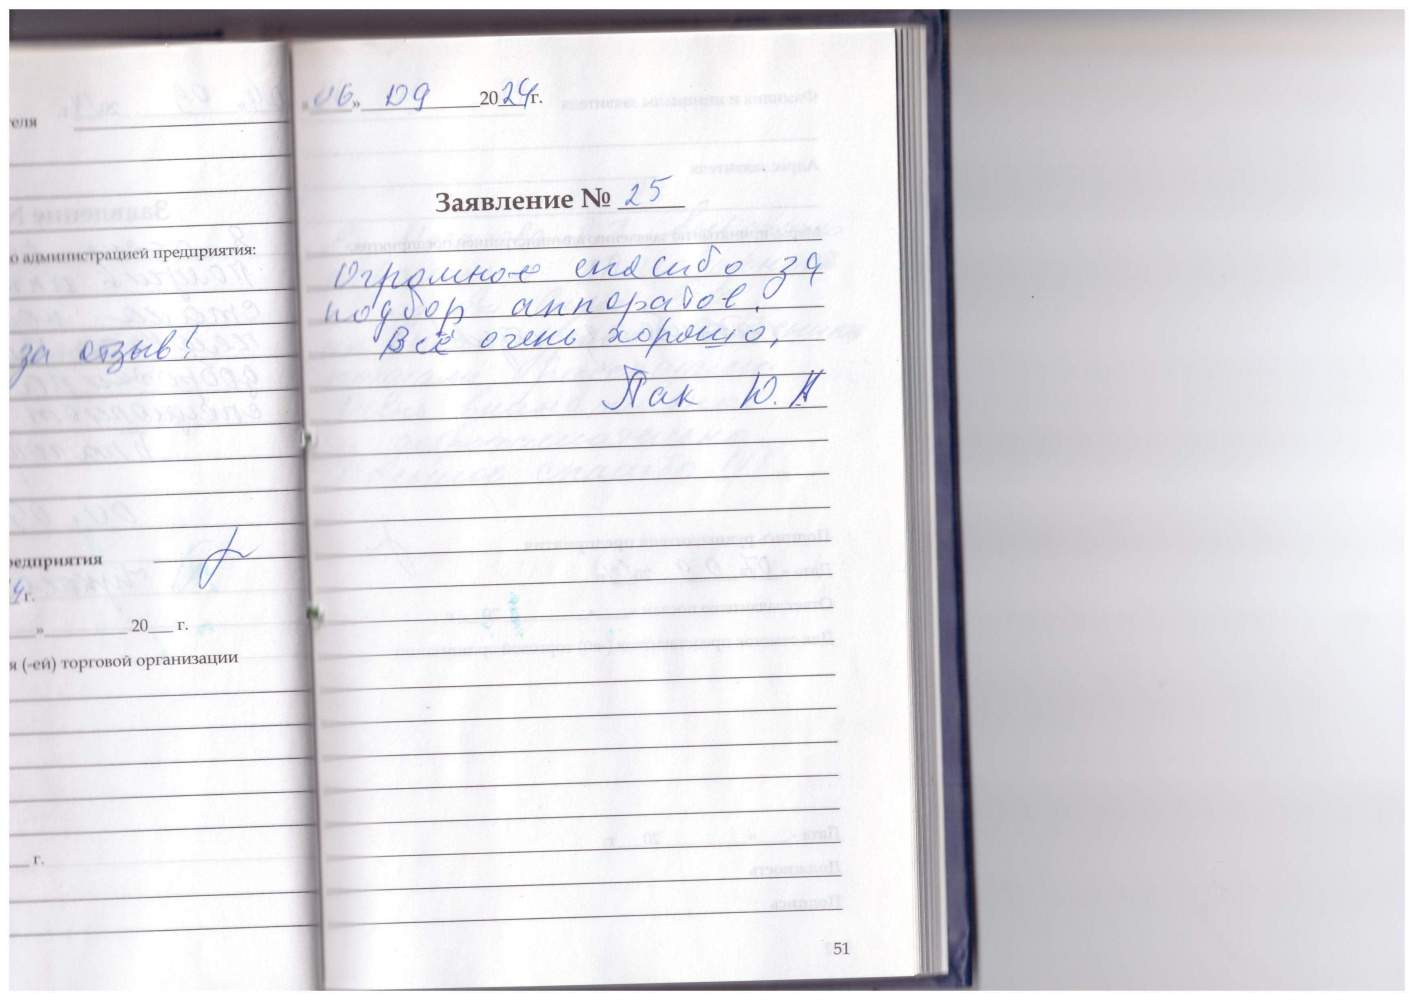 теля
о администрацией предприятия:
за отзыв!
редприятия
4 г.
» 20 г.
я (-ей) торговой организации
г.
«06» 09 2024г.
Заявление № 25
Огромное спасибо за
подбор аппоратов.
Всё очень хорошо,
Пак Ю.А
51